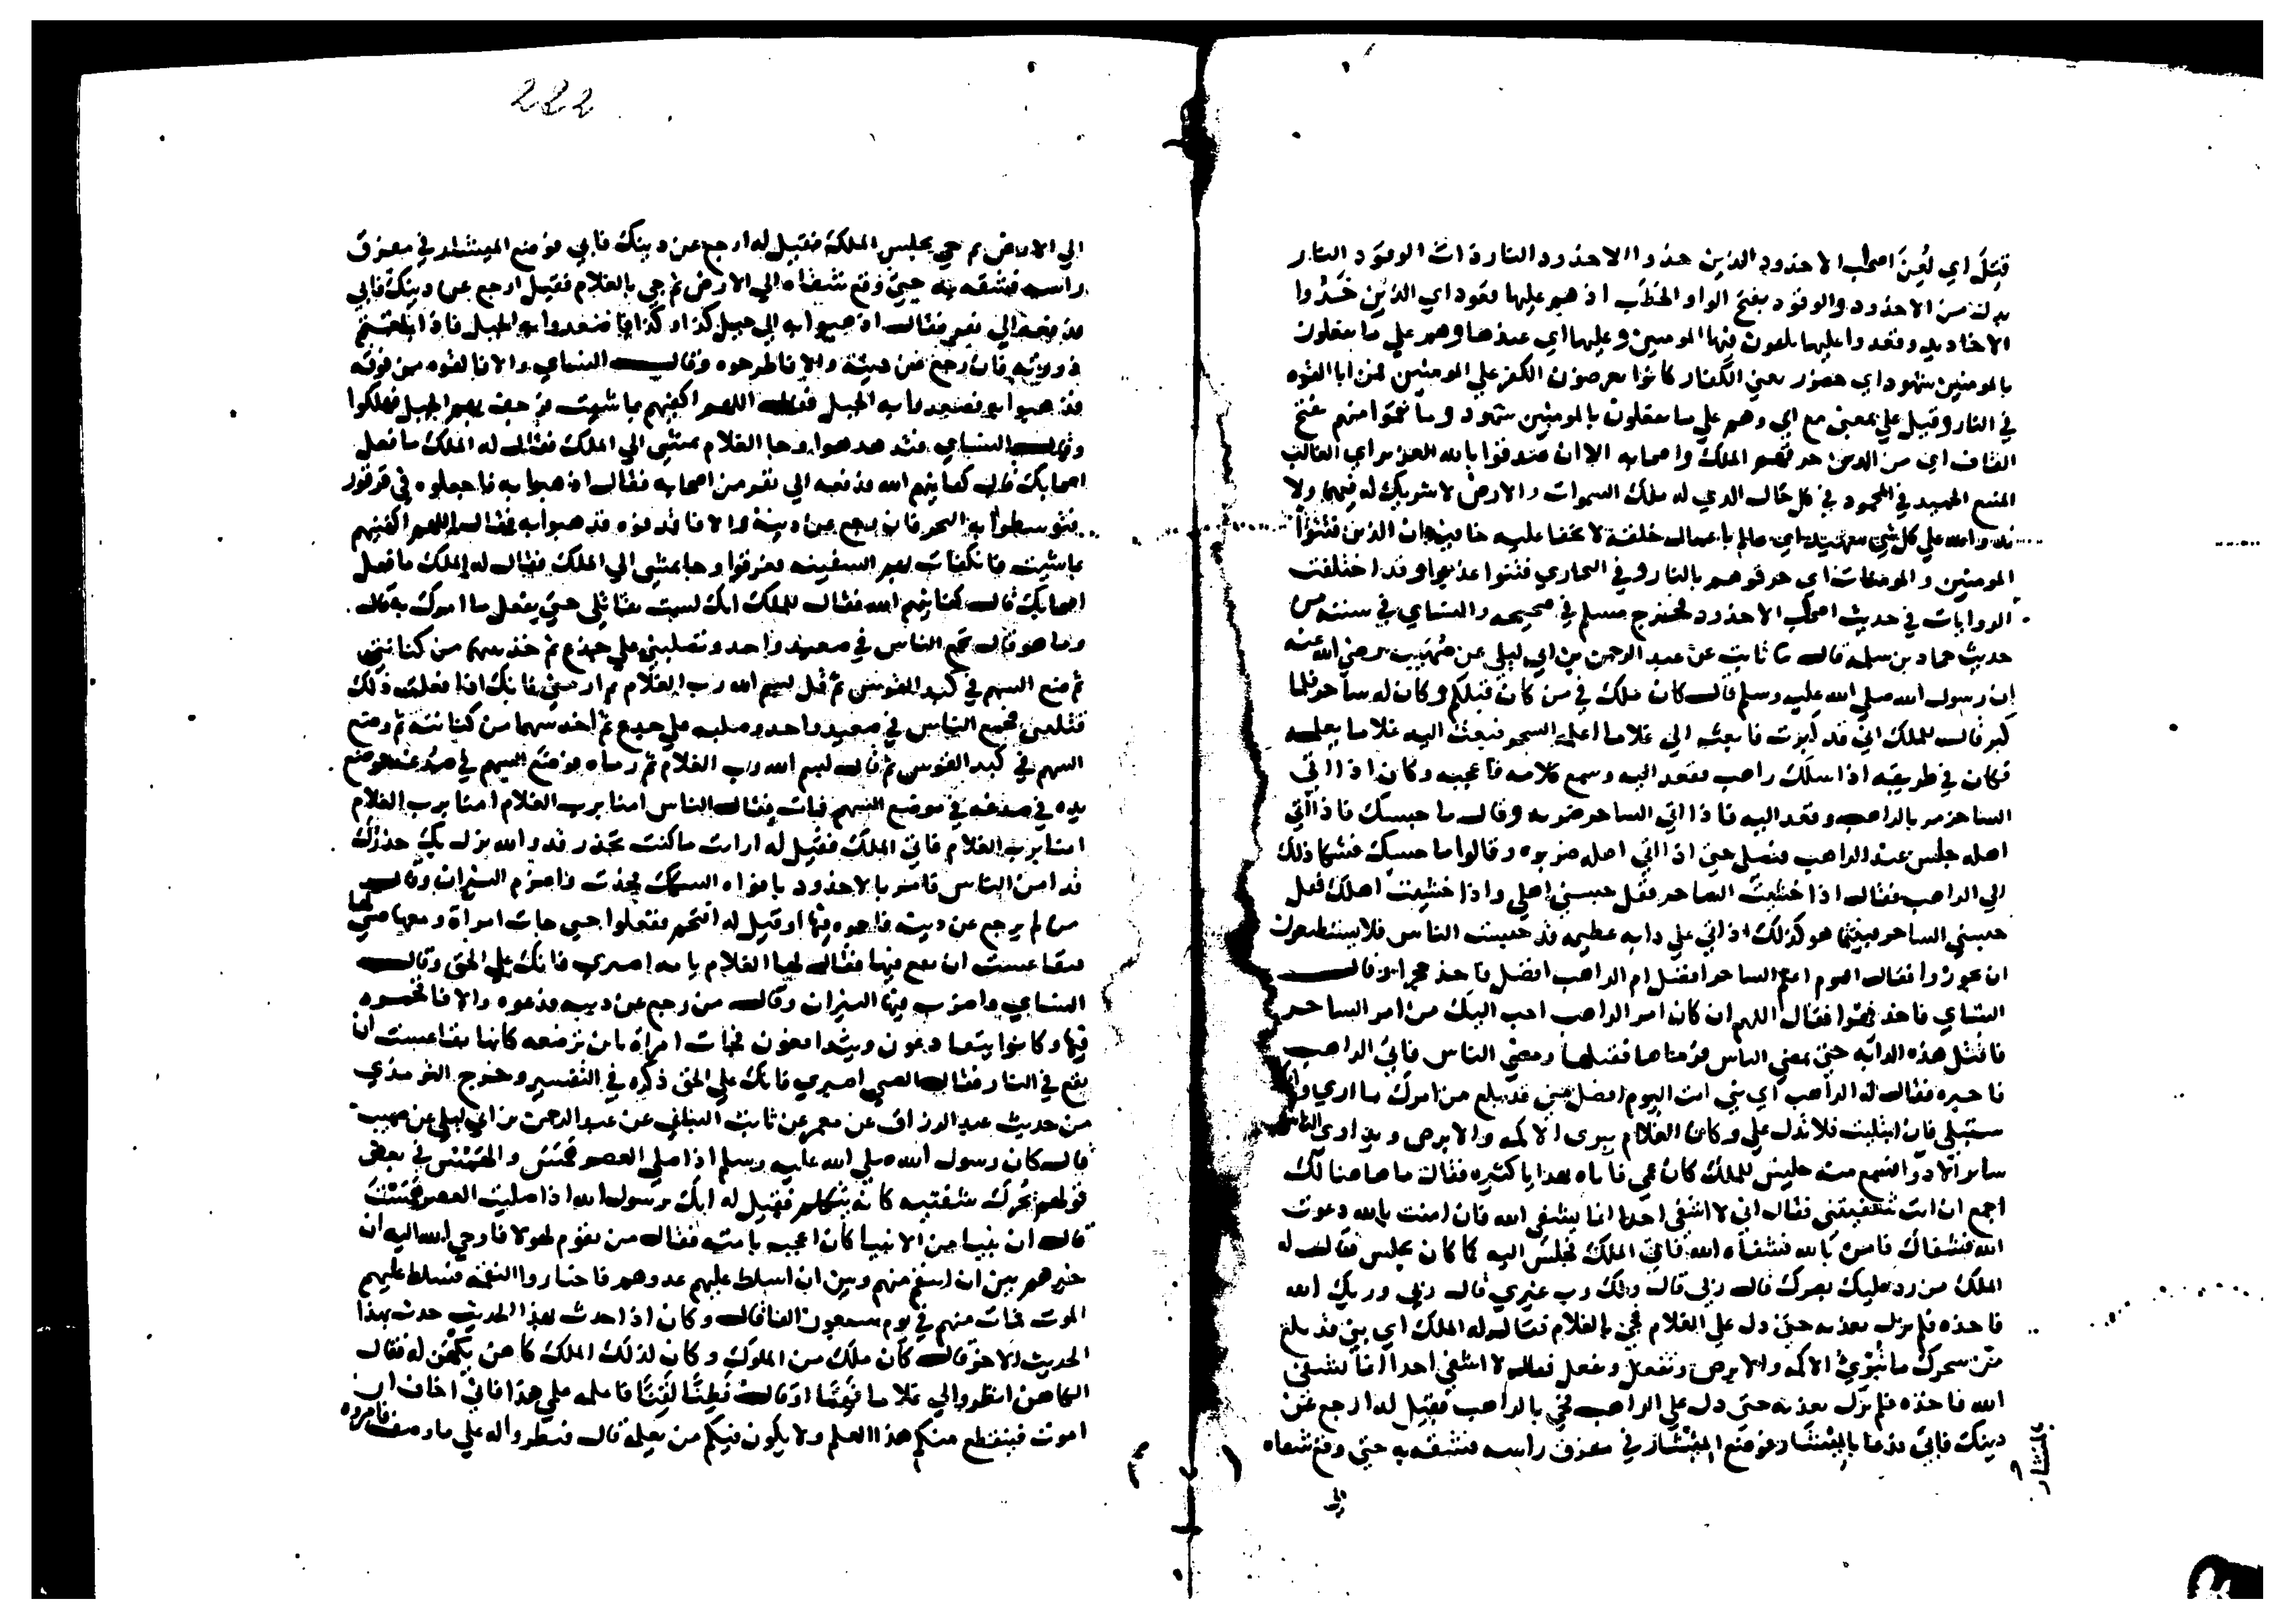 قُتِلَ اي لُعِنَ اصحاب الاخدود الذين خدوا الاخدود النار ذات الوقود النار
بدلة من الاخدود والوقود بفتح الواو الحَطَب اذ هم عليها قعود اي الذين خَدُّوا
الاخاديد وقعدوا عليها يلقون فيها المومنين وعليها اي عندها وهم علي ما يفعلون
بالمومنين شهود اي حضور يعني الكفار كانوا يعرضون الكفر علي المومنين فمن ابا القوه
في النار وقيل علي بمعني مع اي وهم علي ما يفعلون بالمومنين شهود وما نقموا منهم بفتح
القاف اي من الذين حرقهم الملك واصحابه الا ان صدقوا بالله العزيز اي الغالب
المنيع الحميد في المحمود في كل حال الذي له ملك السموات والارض لا شريك له فيهما ولا
ند والله علي كل شي شهيد اي عالم باعمال خلقه لا يخفا عليه خافية ان الذين فتنوا
المومنين والمومنات اي حرقوهم بالنار وفي البخاري فتنوا عذبوا وقد اختلفت
الروايات في حديث اصحاب الاخدود فخرج مسلم في صحيحه والنساي في سننه من
حديث حماد بن سلمة قال نا ثابت عن عبد الرحمن بن ابي ليلي عن صُهَيب رضي الله عنه
ان رسول الله صلي الله عليه وسلم قال كان ملك في من كان قبلكم وكان له ساحر فلما
كبر قال للملك اني قد كبرت فابعث الي غلاما اعلمه السحر فبعث اليه غلاما يعلمه
فكان في طريقه اذا سلك راهب فقعد اليه وسمع كلامه فاعجبه وكان اذا اتي
الساحر مر بالراهب وقعد اليه فاذا اتي الساحر ضربه وقال ما حبسك فاذا اتي
اهله جلس عند الراهب فنصلي حتي اذا اتي اهله ضربوه وقالوا ما حبسك فشكا ذلك
الي الراهب فقال اذا خشيت الساحر فقل حبسني اهلي واذا خشيت اهلك فقل
حبسني الساحر فبينما هو كذلك اذ اتي علي دابه عظيمه قد حبست الناس فلا يستطيعون
ان يجوزوا فقال اليوم اعلم الساحر افضل ام الراهب افضل فاخذ حجرا وقال
النساي فاخذ فهرا فقال اللهم ان كان امر الراهب احب اليك من امر الساحر
فاقتل هذه الدابه حتي يمضي الناس فرماها فقتلها ومضي الناس فاتي الراهب
فاخبره فقال له الراهب اي بني انت اليوم افضل مني قد بلغ من امرك ما اري وانك
ستبتلي فان ابتليت فلا تدل علي وكان الغلام يبري الاكمه والابرص ويداوي الناس
ساير الادوا فسمع منه جليس للملك كان عمي فاتاه بهدايا كثيره فقال ما هاهنا لك
اجمع ان انت شفيتني فقال اني لا اشفي احدا انما يشفي الله فان امنت بالله دعوت
الله فشفاك فامن بالله فشفاه الله فاتي الملك فجلس اليه كما كان يجلس فقال له
الملك من رد عليك بصرك قال ربي قال ولك رب غيري قال ربي وربك الله
فاخذه فلم يزل يعذبه حتي دل علي الغلام فجي بالغلام فقال له الملك اي بني قد بلغ
من سحرك ما تُبْرِئُ الاكمه والابرص وتفعل وتفعل فقال لا اشفي احدا انما يشفي
الله فاخذه فلم يزل يعذبه حتي دل علي الراهب فجي بالراهب فقيل له ارجع عن
دينك فابي فدعا بالمِنْشار فوضع المِنْشار في مفرق راسه فشقه به حتي وقع شقاه
بالمنشار
الي
222
الي الارض ثم جي بجليس الملك فقيل له ارجع عن دينك فابي فوضع الميشار في مفرق
راسه فشقه به حتي وقع شقاه الي الارض ثم جي بالغلام فقيل ارجع عن دينك فابي
فدفعه الي نفر فقال اذهبوا به الي جبل كذا وكذا فاصعدوا به الجبل فاذا بلغتم
ذروته فان رجع عن دينه والا فاطرحوه وقال النساي والا فالقوه من فوقه
فذهبوا به فصعدوا به الجبل فقال اللهم اكفنيهم بما شيت فرجف بهم الجبل فهلكوا
وقال النساي فتدهدهوا وجا الغلام يمشي الي الملك فقال له الملك ما فعل
اصحابك قال كفانيهم الله فدفعه الي نفر من اصحابه فقال اذهبوا به فاجعلوه في قرقور
فتوسطوا به البحر فان رجع عن دينه والا فاقذفوه فذهبوا به فقال اللهم اكفنيهم
بما شيت فانكفات بهم السفينه فغرقوا وجا يمشي الي الملك فقال له الملك ما فعل
اصحابك قال كفانيهم الله فقال للملك انك لست بقاتلي حتي تفعل ما امرك به قال
وما هو قال تجمع الناس في صعيد واحد وتصلبني علي جذع ثم خذ سهم من كنانتي
ثم ضع السهم في كبد القوس ثم قل بسم الله رب الغلام ثم ارمني فانك اذا فعلت ذلك
قتلتني فجمع الناس في صعيد واحد وصلبه علي جذع ثم اخذ سهما من كنانته ثم وضع
السهم في كبد القوس ثم قال بسم الله رب الغلام ثم رماه فوقع السهم في صُدغه فوضع
يده في صدغه في موضع السهم فمات فقال الناس امنا برب الغلام امنا برب الغلام
امنا برب الغلام فاتي الملك فقيل له ارايت ما كنت تحذر قد والله نزل بك حذرك
قد امن الناس فامر بالاخدود بافواه السكك فخدت واضرم النيران وقال
من لم يرجع عن دينه فاحموه فيها او قيل له اقتحم ففعلوا حتي جات امراة ومعها صبي لها
فتقاعست ان تقع فيها فقال لها الغلام يا امه اصبري فانك علي الحق وقال
النساي واضرب فيها النيران وقال من رجع عن دينه فدعوه والا فاقحموه
فيها وكانوا يتعادون ويتدافعون فجات امراة بابن ترضعه كانها تقاعست ان
تقع في النار فقال الصبي اصبري فانك علي الحق ذكره في التفسير وخرج الترمذي
من حديث عبد الرزاق عن معمر عن ثابت البناني عن عبد الرحمن بن ابي ليلي عن صهيب
قال كان رسول الله صلي الله عليه وسلم اذا صلي العصر هَمَسَ والهَمْسُ في بعض
قولهم تحرك شفتيه كانه يتكلم فقيل له انك يرسول الله اذا صليت العصر هَمَسْتَ
قال ان نبيا من الانبيا كان اعجب بامته فقال من يقوم لهولا فاوحي الله اليه ان
خيرهم بين ان انتقم منهم وبين ان اسلط عليهم عدوهم فاختاروا النقمة فسلط عليهم
الموت فمات منهم في يوم سبعون الفا قال وكان اذا حدث بهذا الحديث حدث بهذا
الحديث الاخر قال كان ملك من الملوك وكان لذلك الملك كاهن يكهن له فقال
الكاهن انظروا لي غلاما فَهِمًا او قال فَطِنًا لَقِنًا فاعلمه علمي هذا فاني اخاف ان
اموت فينقطع منكم هذا العلم ولا يكون فيكم من يعلمه قال فنظروا له علي ما وصف فامروه